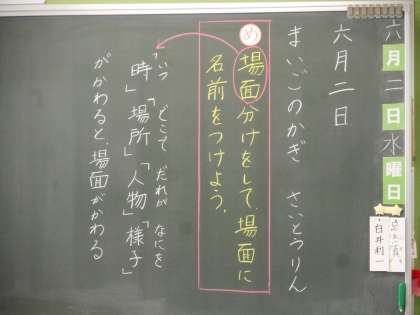 六月二日水曜日
白井利一
六月二日
まいごのかぎ さいとうりん
め
場面分けをして、場面に
名前をつけよう。
いつ どこで だれが なにを
「時」「場所」「人物」「様子」
がかわると、場面がかわる